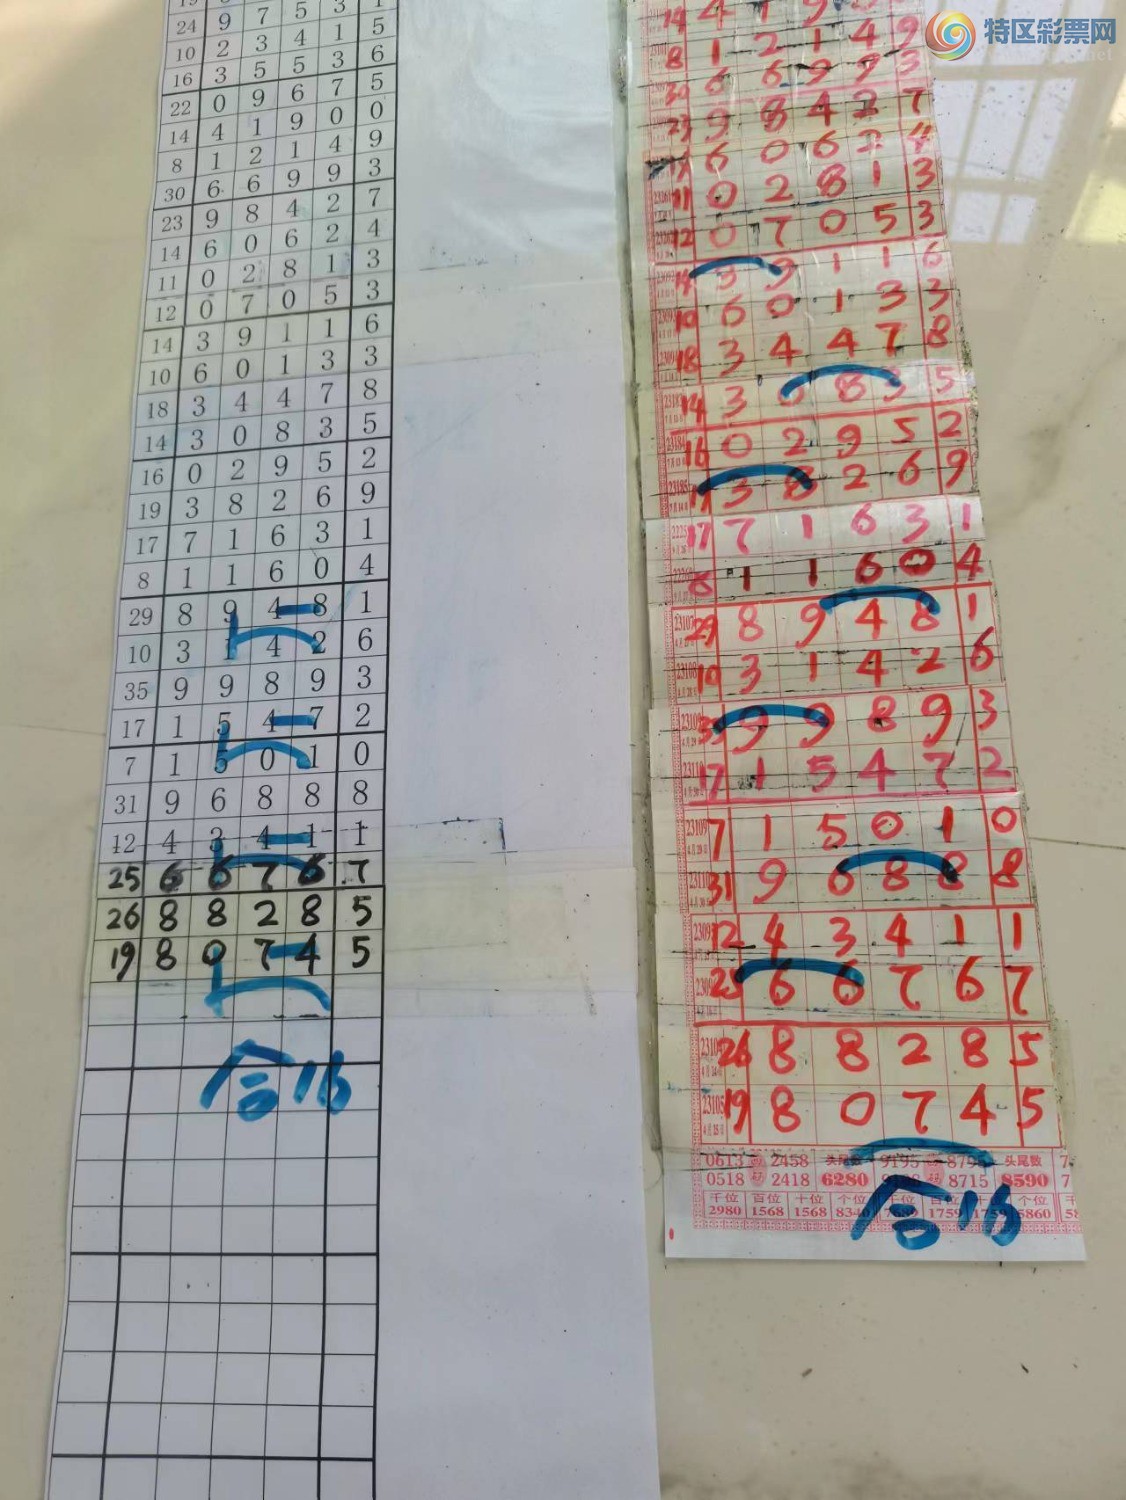 特区彩票网
24 9 7 5 3 1
10 2 3 4 1 5
16 3 5 5 3 6
22 0 9 6 7 5
14 4 1 9 0 0
8 1 2 1 4 9
30 6 6 9 9 3
23 9 8 4 2 7
14 6 0 6 2 4
11 0 2 8 1 3
12 0 7 0 5 3
14 3 9 1 1 6
10 6 0 1 3 3
18 3 4 4 7 8
14 3 0 8 3 5
16 0 2 9 5 2
19 3 8 2 6 9
17 7 1 6 3 1
8 1 1 6 0 4
29 8 9 4 8 1
10 3 1 4 2 6
35 9 9 8 9 3
17 1 5 4 7 2
7 1 5 0 1 0
31 9 6 8 8 8
12 4 3 4 1 1
25 6 6 7 6 7
26 8 8 2 8 5
19 8 0 7 4 5
合16
14 4 1 9
8 1 2 1 4 9
30 6 6 9 9 3
23 9 8 4 2 7
6 0 6 2 4
11 0 2 8 1 3
12 0 7 0 5 3
14 3 9 1 1 6
10 6 0 1 3 3
18 3 4 4 7 8
14 3 0 8 3 5
23184 16 0 2 9 5 2
23185 3 8 2 6 9
17 7 1 6 3 1
8 1 1 6 0 4
23107 29 8 9 4 8 1
23108 10 3 1 4 2 6
35 9 9 8 9 3
17 1 5 4 7 2
23109 7 1 5 0 1 0
31 9 6 8 8 8
12 4 3 4 1 1
25 6 6 7 6 7
26 8 8 2 8 5
23105 19 8 0 7 4 5
0613 2458 头尾数 9195 头尾数
0518 2418 6280 8715 8590
千位 百位 十位 个位 千位 百位 个位
2980 1568 1568 8340 1759 5860
合16